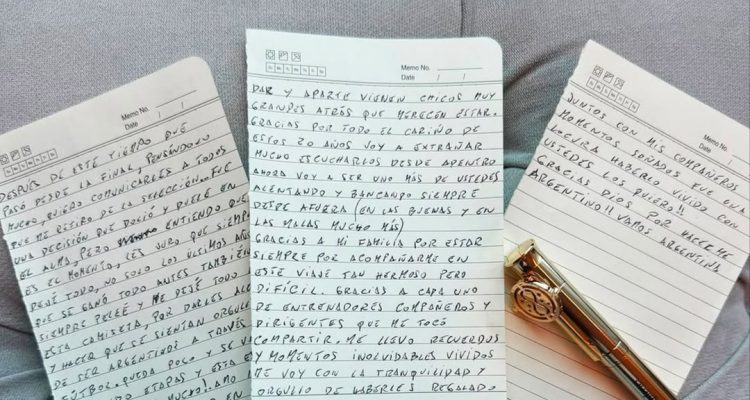 Memo No.
Date / /
DESPUES DE ESTE TIEMPO QUE
PASÓ DESDE LA FINAL, PENSÁNDOLO
MUCHO, QUIERO COMUNICARLES A TODOS
QUE ME RETIRO DE LA SELECCIÓN. FUE
UNA DECISIÓN QUE DOLIÓ Y DUELE EN
EL ALMA, PERO ENTIENDO QUE
ES EL MOMENTO, LES JURO QUE SIEMP
DEJÉ TODO, NO SOLO LOS ÚLTIMOS AÑOS
QUE SE GANÓ TODO ANTES TAMBIÉN
SIEMPRE PELEÉ Y ME DEJÉ TODO
ESTA CAMISETA, POR DARLES
Y HACER QUE SE SIENTAN
DE SER ARGENTINOS A TRAVÉS
FÚTBOL. QUEDA POCO Y SE
ETAPAS Y ESTA
MUCHO!! AMO
EN
Memo No.
Date / /
DAR Y APARTE VIENEN CHICOS MUY
GRANDES ATRÁS QUE MERECEN ESTAR.
GRACIAS POR TODO EL CARIÑO DE
ESTOS 20 AÑOS VOY A EXTRAÑAR
MUCHO ESCUCHARLOS DESDE ADENTRO
AHORA VOY A SER UNO MÁS DE USTEDES
ALENTANDO Y BANCANDO SIEMPRE
DESDE AFUERA (EN LAS BUENAS Y EN
LAS MALAS MUCHO MÁS)
GRACIAS A MI FAMILIA POR ESTAR
SIEMPRE POR ACOMPAÑARME EN
ESTE VIAJE TAN HERMOSO PERO
DIFÍCIL. GRACIAS A CADA UNO
DE ENTRENADORES COMPAÑEROS Y
DIRIGENTES QUE ME TOCÓ
COMPARTIR. ME LLEVO RECUERDOS
Y MOMENTOS INOLVIDABLES VIVIDOS
ME VOY CON LA TRANQUILIDAD Y
ORGULLO DE HABERLES REGALADO
Memo No.
Date
JUNTOS CON MIS COMPAÑEROS
MOMENTOS SOÑADOS FUE UNA
LOCURA HABERLO VIVIDO CON
USTEDES LOS QUIERO!!
GRACIAS DIOS POR HACERME
ARGENTINO!! VAMOS ARGENTINA